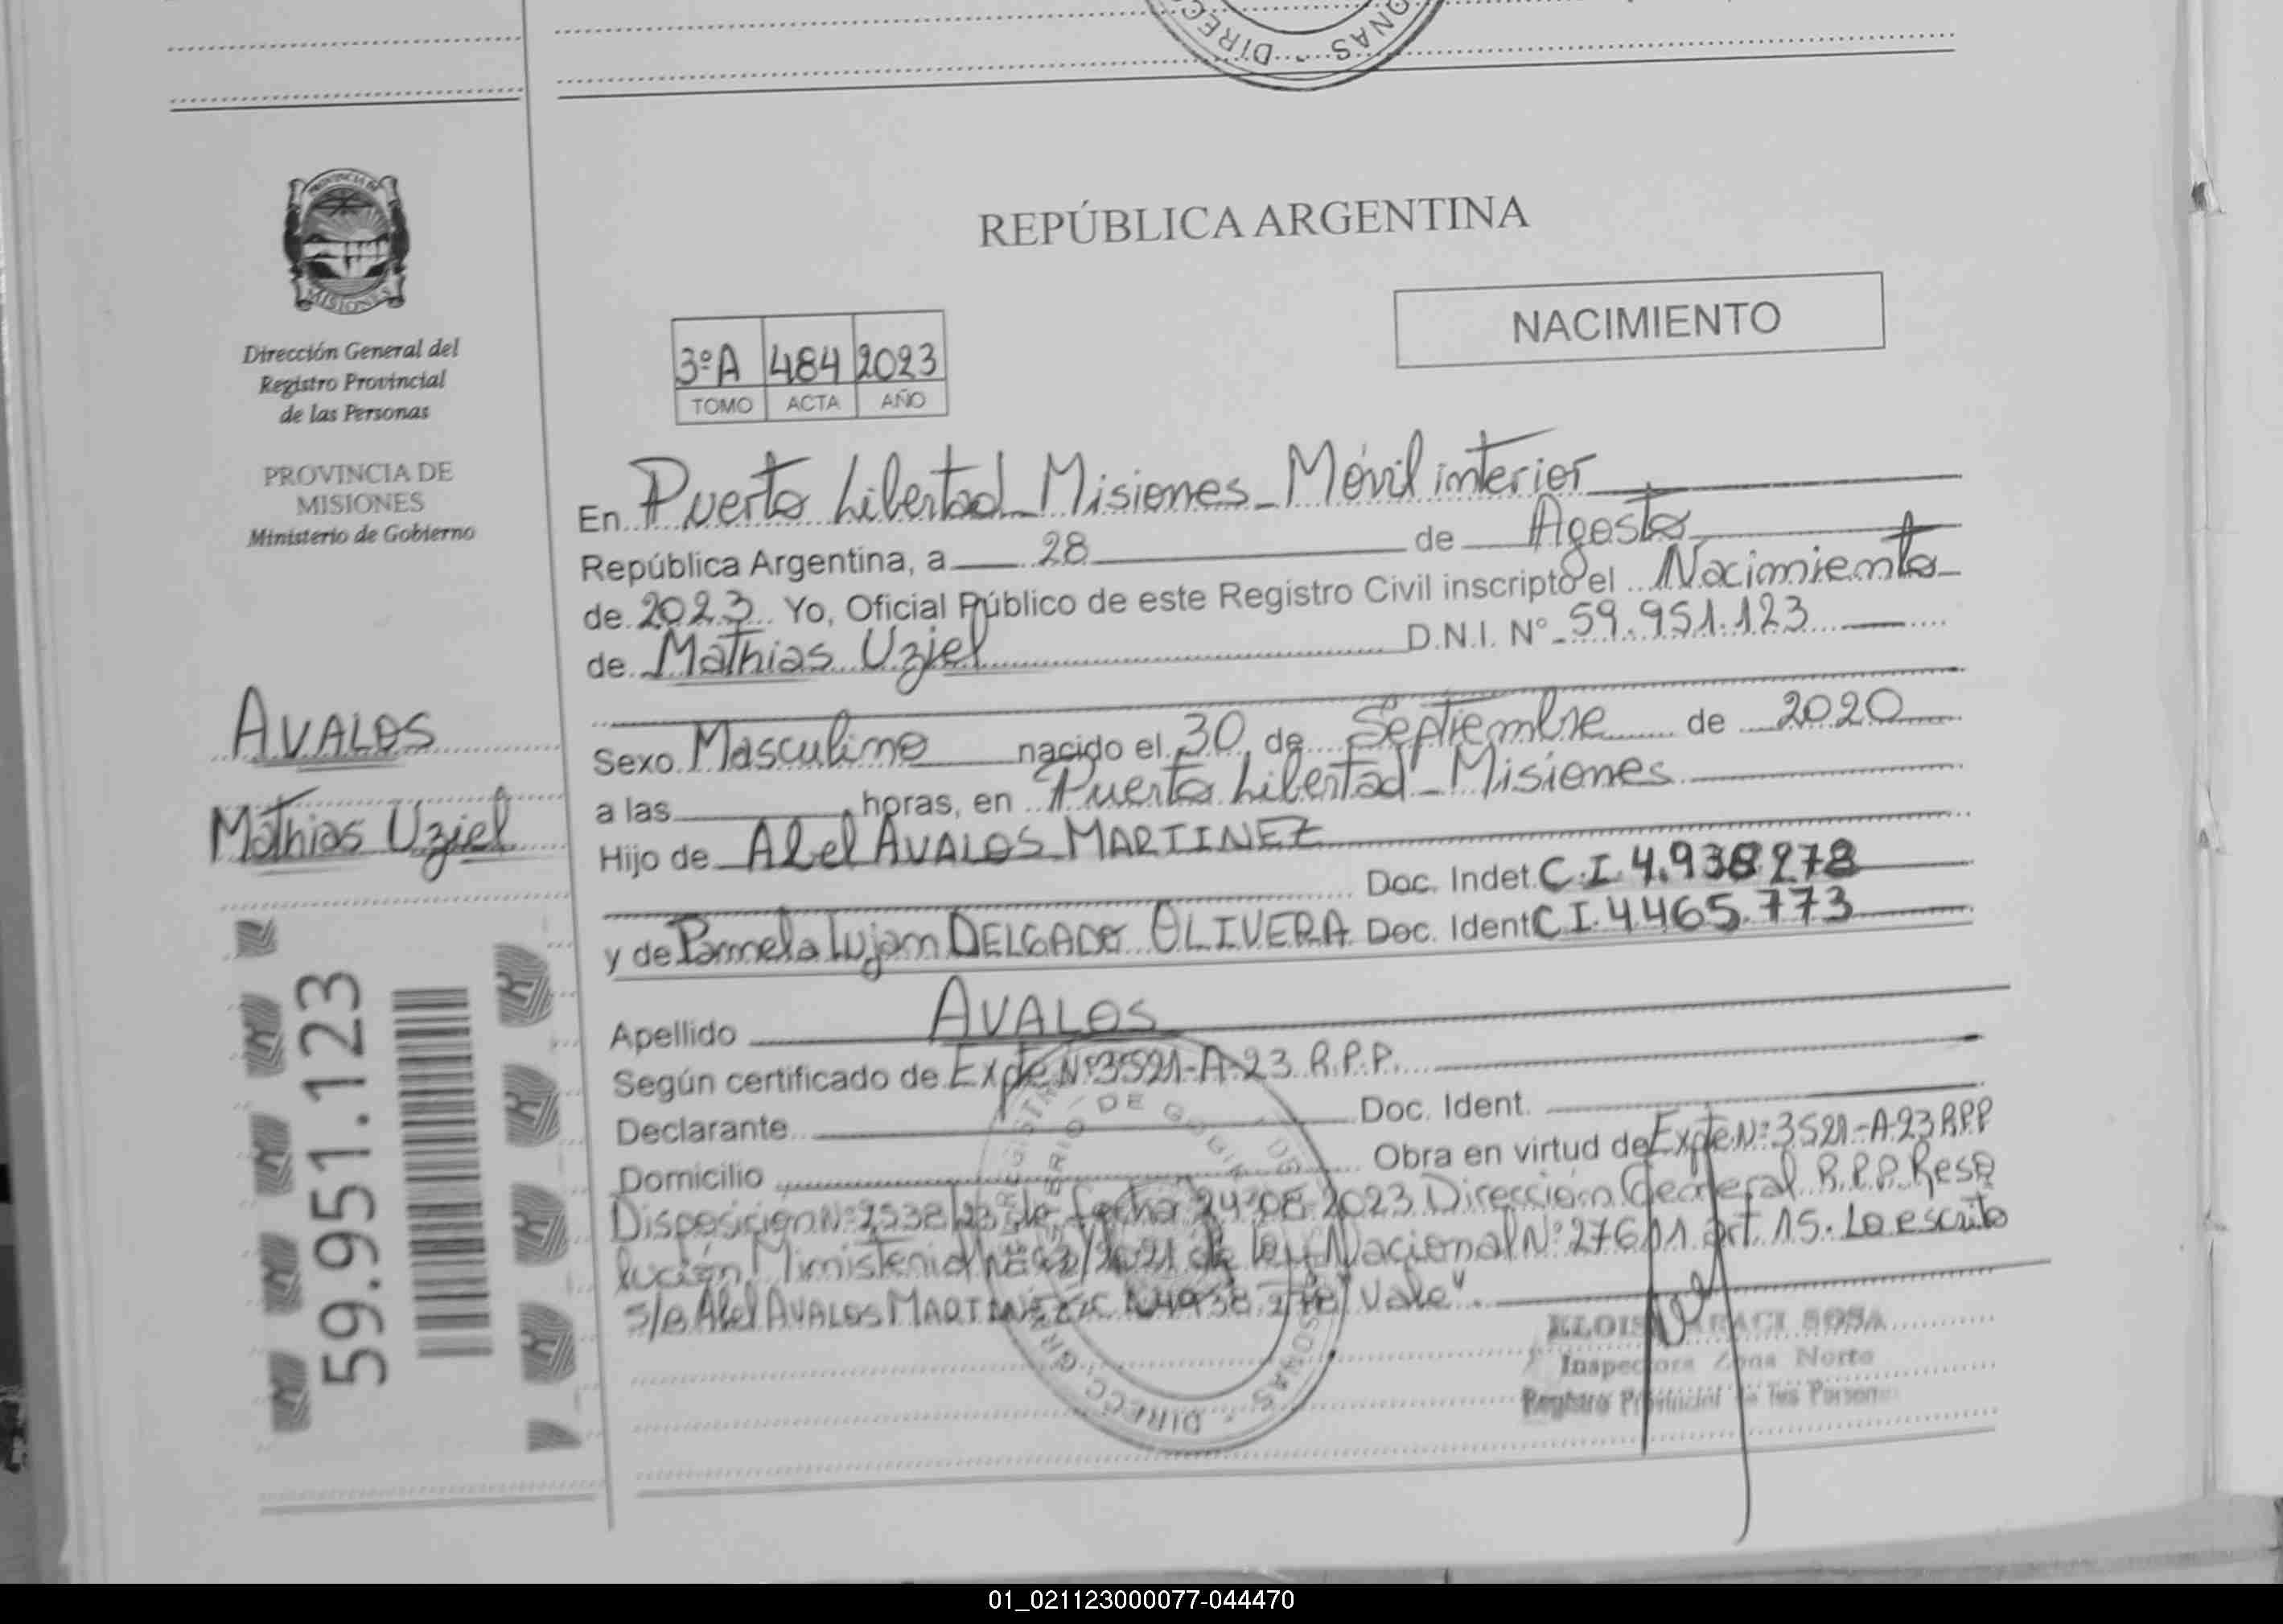 DIRECC ONAS
PROVINCIA DE
MISIONES
Dirección General del
Registro Provincial
de las Personas
PROVINCIA DE
MISIONES
Ministerio de Gobierno
AVALOS
Mathias Uziel
59.951.123
REPÚBLICA ARGENTINA
NACIMIENTO
3ºA 484 2023
TOMO ACTA AÑO
En Puerto Libertad_ Misiones_ Móvil interior
República Argentina, a 28 de Agosto
de 2023 Yo, Oficial Público de este Registro Civil inscripto el Nacimiento
de Mathias Uziel D.N.I. Nº 59.951.123
Sexo Masculino nacido el 30 de Septiembre de 2020
a las horas, en Puerto Libertad_ Misiones
Hijo de Abel AVALOS MARTINEZ
Doc. Indet. C.I. 4.938278
y de Pamela Lujan DELGADO OLIVERA Doc. Ident C I. 4.465.773
Apellido AVALOS
Según certificado de Expte Nº 3521-A-23 R.P.P.
Declarante Doc. Ident.
Domicilio Obra en virtud de Expte Nº 3521-A-23 RPP
Disposición Nº 2538/23 de fecha 24-08-2023 Dirección General R.P.P. Reso
lución Ministerial de ley Nacional Nº 27611 art. 15. Lo escrito
s/b Abel AVALOS MARTINEZ 4938.278 "Vale".
SOSA
Inspectora Zona Norte
Registro Provincial de las Personas
01_021123000077-044470